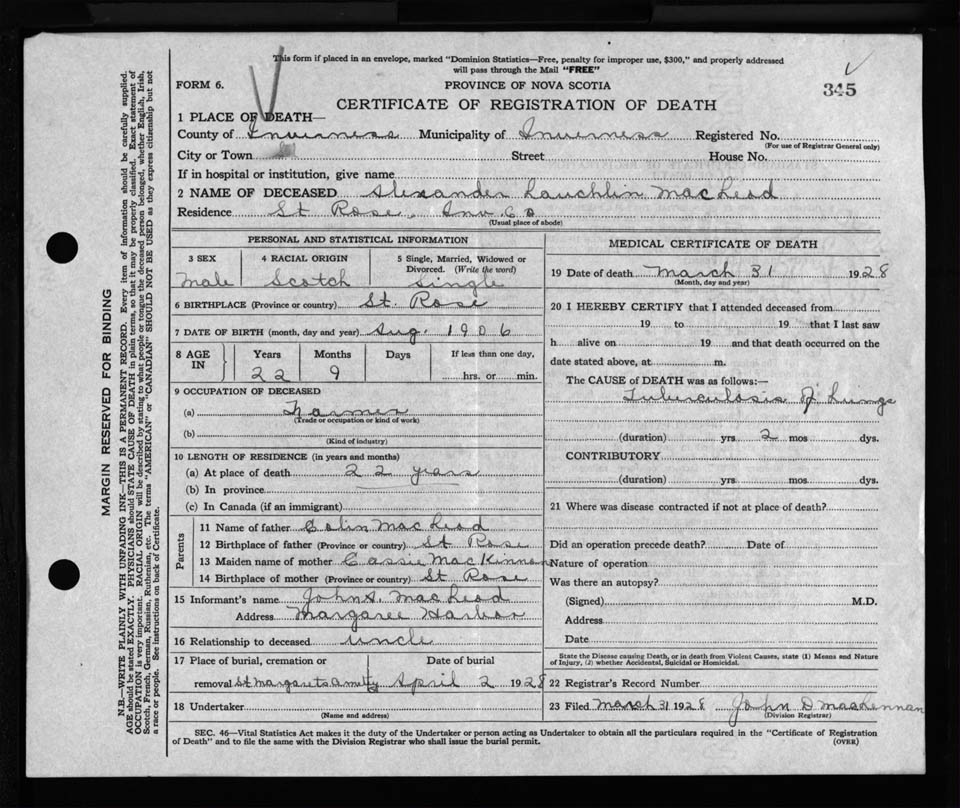 This form if placed in an envelope, marked "Dominion Statistics—Free, penalty for improper use, $300," and properly addressed
will pass through the Mail "FREE"
FORM 6.
PROVINCE OF NOVA SCOTIA
345
CERTIFICATE OF REGISTRATION OF DEATH
1 PLACE OF DEATH—
County of Inverness Municipality of Inverness Registered No.
(For use of Registrar General only)
City or Town Street House No.
If in hospital or institution, give name
2 NAME OF DECEASED Alexander Lauchlin MacLeod
Residence St Rose, Inv. Co
(Usual place of abode)
PERSONAL AND STATISTICAL INFORMATION
3 SEX
Male
4 RACIAL ORIGIN
Scotch
5 Single, Married, Widowed or
Divorced. (Write the word)
Single
6 BIRTHPLACE (Province or country) St. Rose
7 DATE OF BIRTH (month, day and year) Aug. 1906
8 AGE IN
Years Months Days If less than one day,
22 9 hrs. or min.
9 OCCUPATION OF DECEASED
(a) Farmer
(Trade or occupation or kind of work)
(b)
(Kind of industry)
10 LENGTH OF RESIDENCE (in years and months)
(a) At place of death 22 years
(b) In province
(c) In Canada (if an immigrant)
Parents
11 Name of father Colin MacLeod
12 Birthplace of father (Province or country) St Rose
13 Maiden name of mother Cassie MacKinnon
14 Birthplace of mother (Province or country) St Rose
15 Informant's name John A MacLeod
Address Margaree Harbor
16 Relationship to deceased uncle
17 Place of burial, cremation or Date of burial
removal St Margarets April 2 1928
18 Undertaker
(Name and address)
MEDICAL CERTIFICATE OF DEATH
19 Date of death March 31 1928
(Month, day and year)
20 I HEREBY CERTIFY that I attended deceased from
19 to 19 that I last saw
h alive on 19 and that death occurred on the
date stated above, at m.
The CAUSE of DEATH was as follows:—
Tuberculosis of Lungs
(duration) yrs 2 mos dys.
CONTRIBUTORY
(duration) yrs. mos. dys.
21 Where was disease contracted if not at place of death?
Did an operation precede death? Date of
Nature of operation
Was there an autopsy?
(Signed) M.D.
Address
Date
State the Disease causing Death, or in death from Violent Causes, state (1) Means and Nature
of Injury, (2) whether Accidental, Suicidal or Homicidal.
22 Registrar's Record Number
23 Filed March 31 1928 John D MacLennan
(Division Registrar)
SEC. 46—Vital Statistics Act makes it the duty of the Undertaker or person acting as Undertaker to obtain all the particulars required in the "Certificate of Registration
of Death" and to file the same with the Division Registrar who shall issue the burial permit.
(OVER)
MARGIN RESERVED FOR BINDING
N.B.—WRITE PLAINLY WITH UNFADING INK—THIS IS A PERMANENT RECORD. Every item of information should be carefully supplied.
AGE should be stated EXACTLY. PHYSICIANS should STATE CAUSE OF DEATH in plain terms, so that it may be properly classified. Exact statement of
OCCUPATION is very important. RACIAL ORIGIN will be described by stating to what people or tongue the deceased person belonged, whether English, Irish,
Scotch, French, German, Russian, Ruthenian, etc. The terms "AMERICAN" or "CANADIAN" SHOULD NOT BE USED as they express citizenship but not
a race or people. See instructions on back of Certificate.